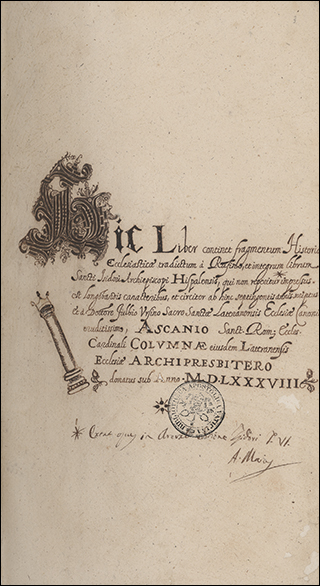 Hic Liber continet fragmentum Historiæ
Ecclesiasticæ traductum à Rufino, et integrum librum
Sancti Isidori Archiepiscopi Hispalensis, qui non reperitur impressus
est longbardis caracteribus, et circiter ab hinc annis
et à Doctore Fulvio Ursino Sacro Sanctæ Lateranensis Ecclesiæ Canonico
eruditissimo, ASCANIO Sanct. Rom; Eccles.
Cardinali COLVMNÆ eiusdem Lateranensis
Ecclesiæ ARCHIPRESBITERO
donatus sub Anno M.D.LXXXVIII
* Extat opus in Isidori T. VI.
A. Maius